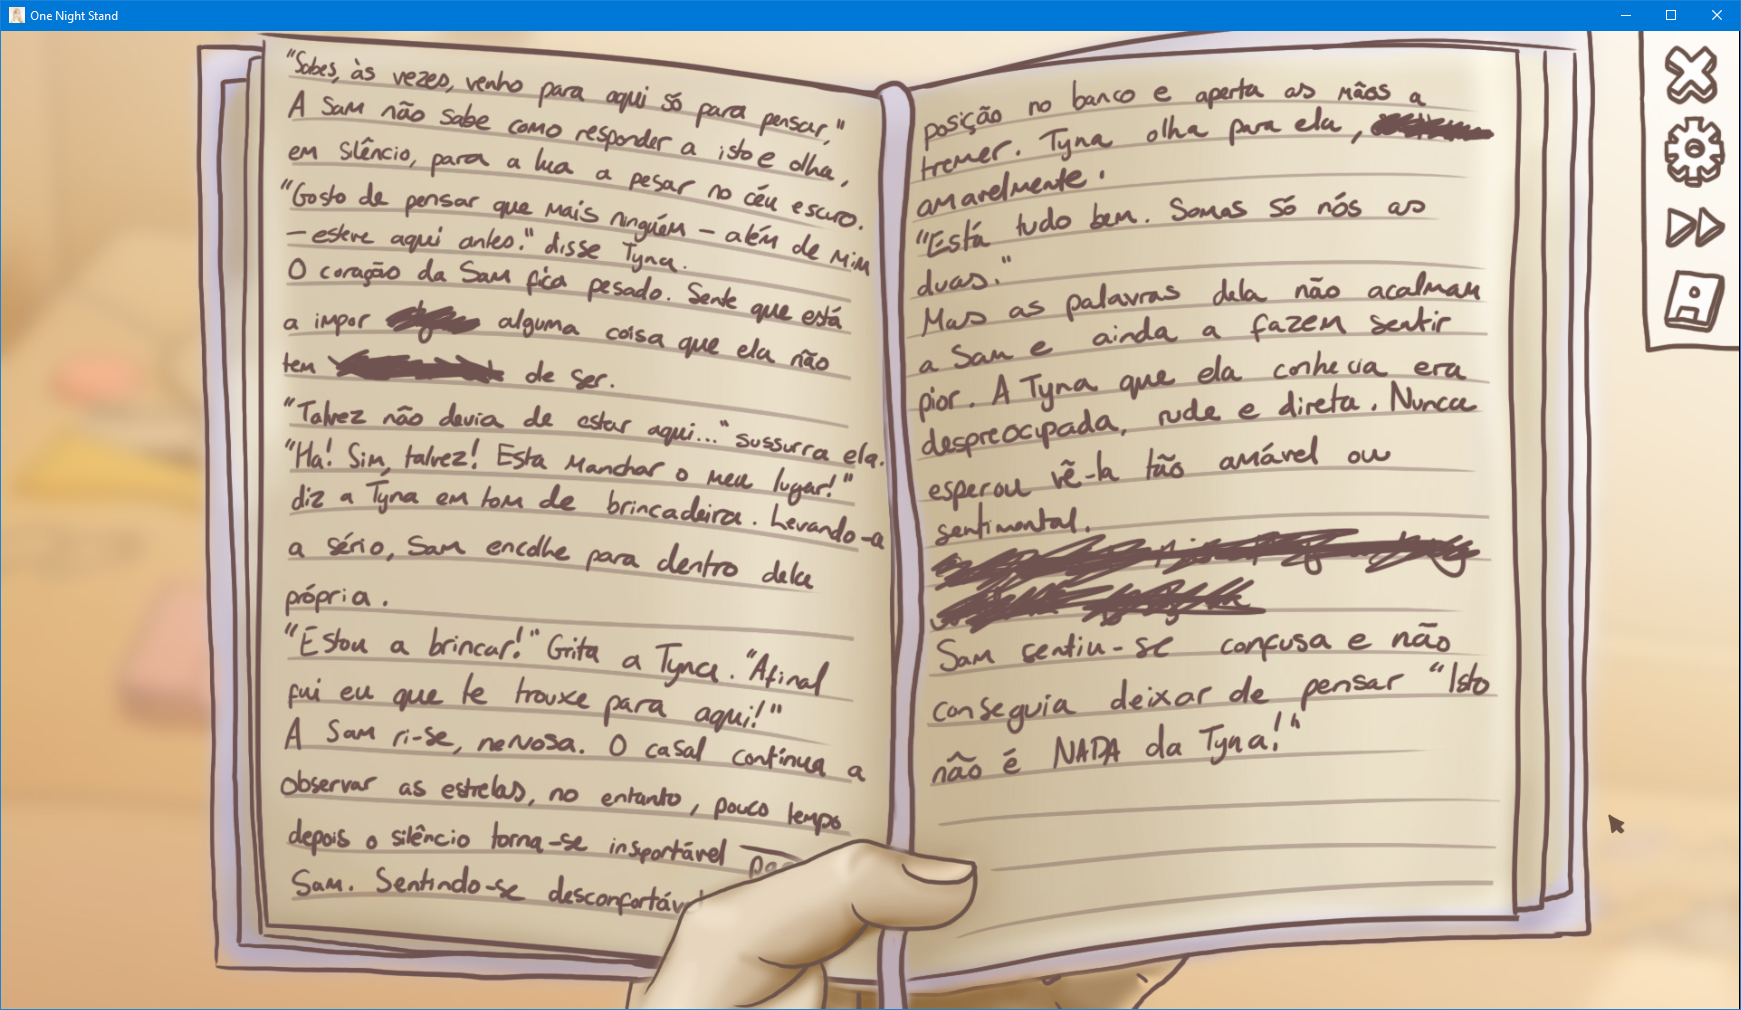 One Night Stand
"Sabes, às vezes, venho para aqui só para pensar,"
A Sam não sabe como responder a isto e olha,
em silêncio, para a lua a pesar no céu escuro.
"Gosto de pensar que mais ninguém – além de mim
– esteve aqui antes." disse Tyna.
O coração da Sam fica pesado. Sente que está
a impor alguma coisa que ela não
tem de ser.
"Talvez não devia de estar aqui..." sussurra ela.
"Ha! Sim, talvez! Esta manchar o meu lugar!"
diz a Tyna em tom de brincadeira. Levando-a
a sério, Sam encolhe para dentro dela
própria.
"Estou a brincar!" Grita a Tyna. "Afinal
fui eu que te trouxe para aqui!"
A Sam ri-se, nervosa. O casal contínua a
observar as estrelas, no entanto, pouco tempo
depois o silêncio torna-se insportável
Sam. Sentindo-se
posição no banco e aperta as mãos a
tremer. Tyna olha para ela,
amavelmente.
"Está tudo bem. Somas só nós as
duas."
Mas as palavras dela não acalmam
a Sam e ainda a fazem sentir
pior. A Tyna que ela conhecia era
despreocupada, rude e direta. Nunca
esperou vê-la tão amável ou
sentimental.
Sam sentiu-se confusa e não
conseguia deixar de pensar "Isto
não é NADA da Tyna!"